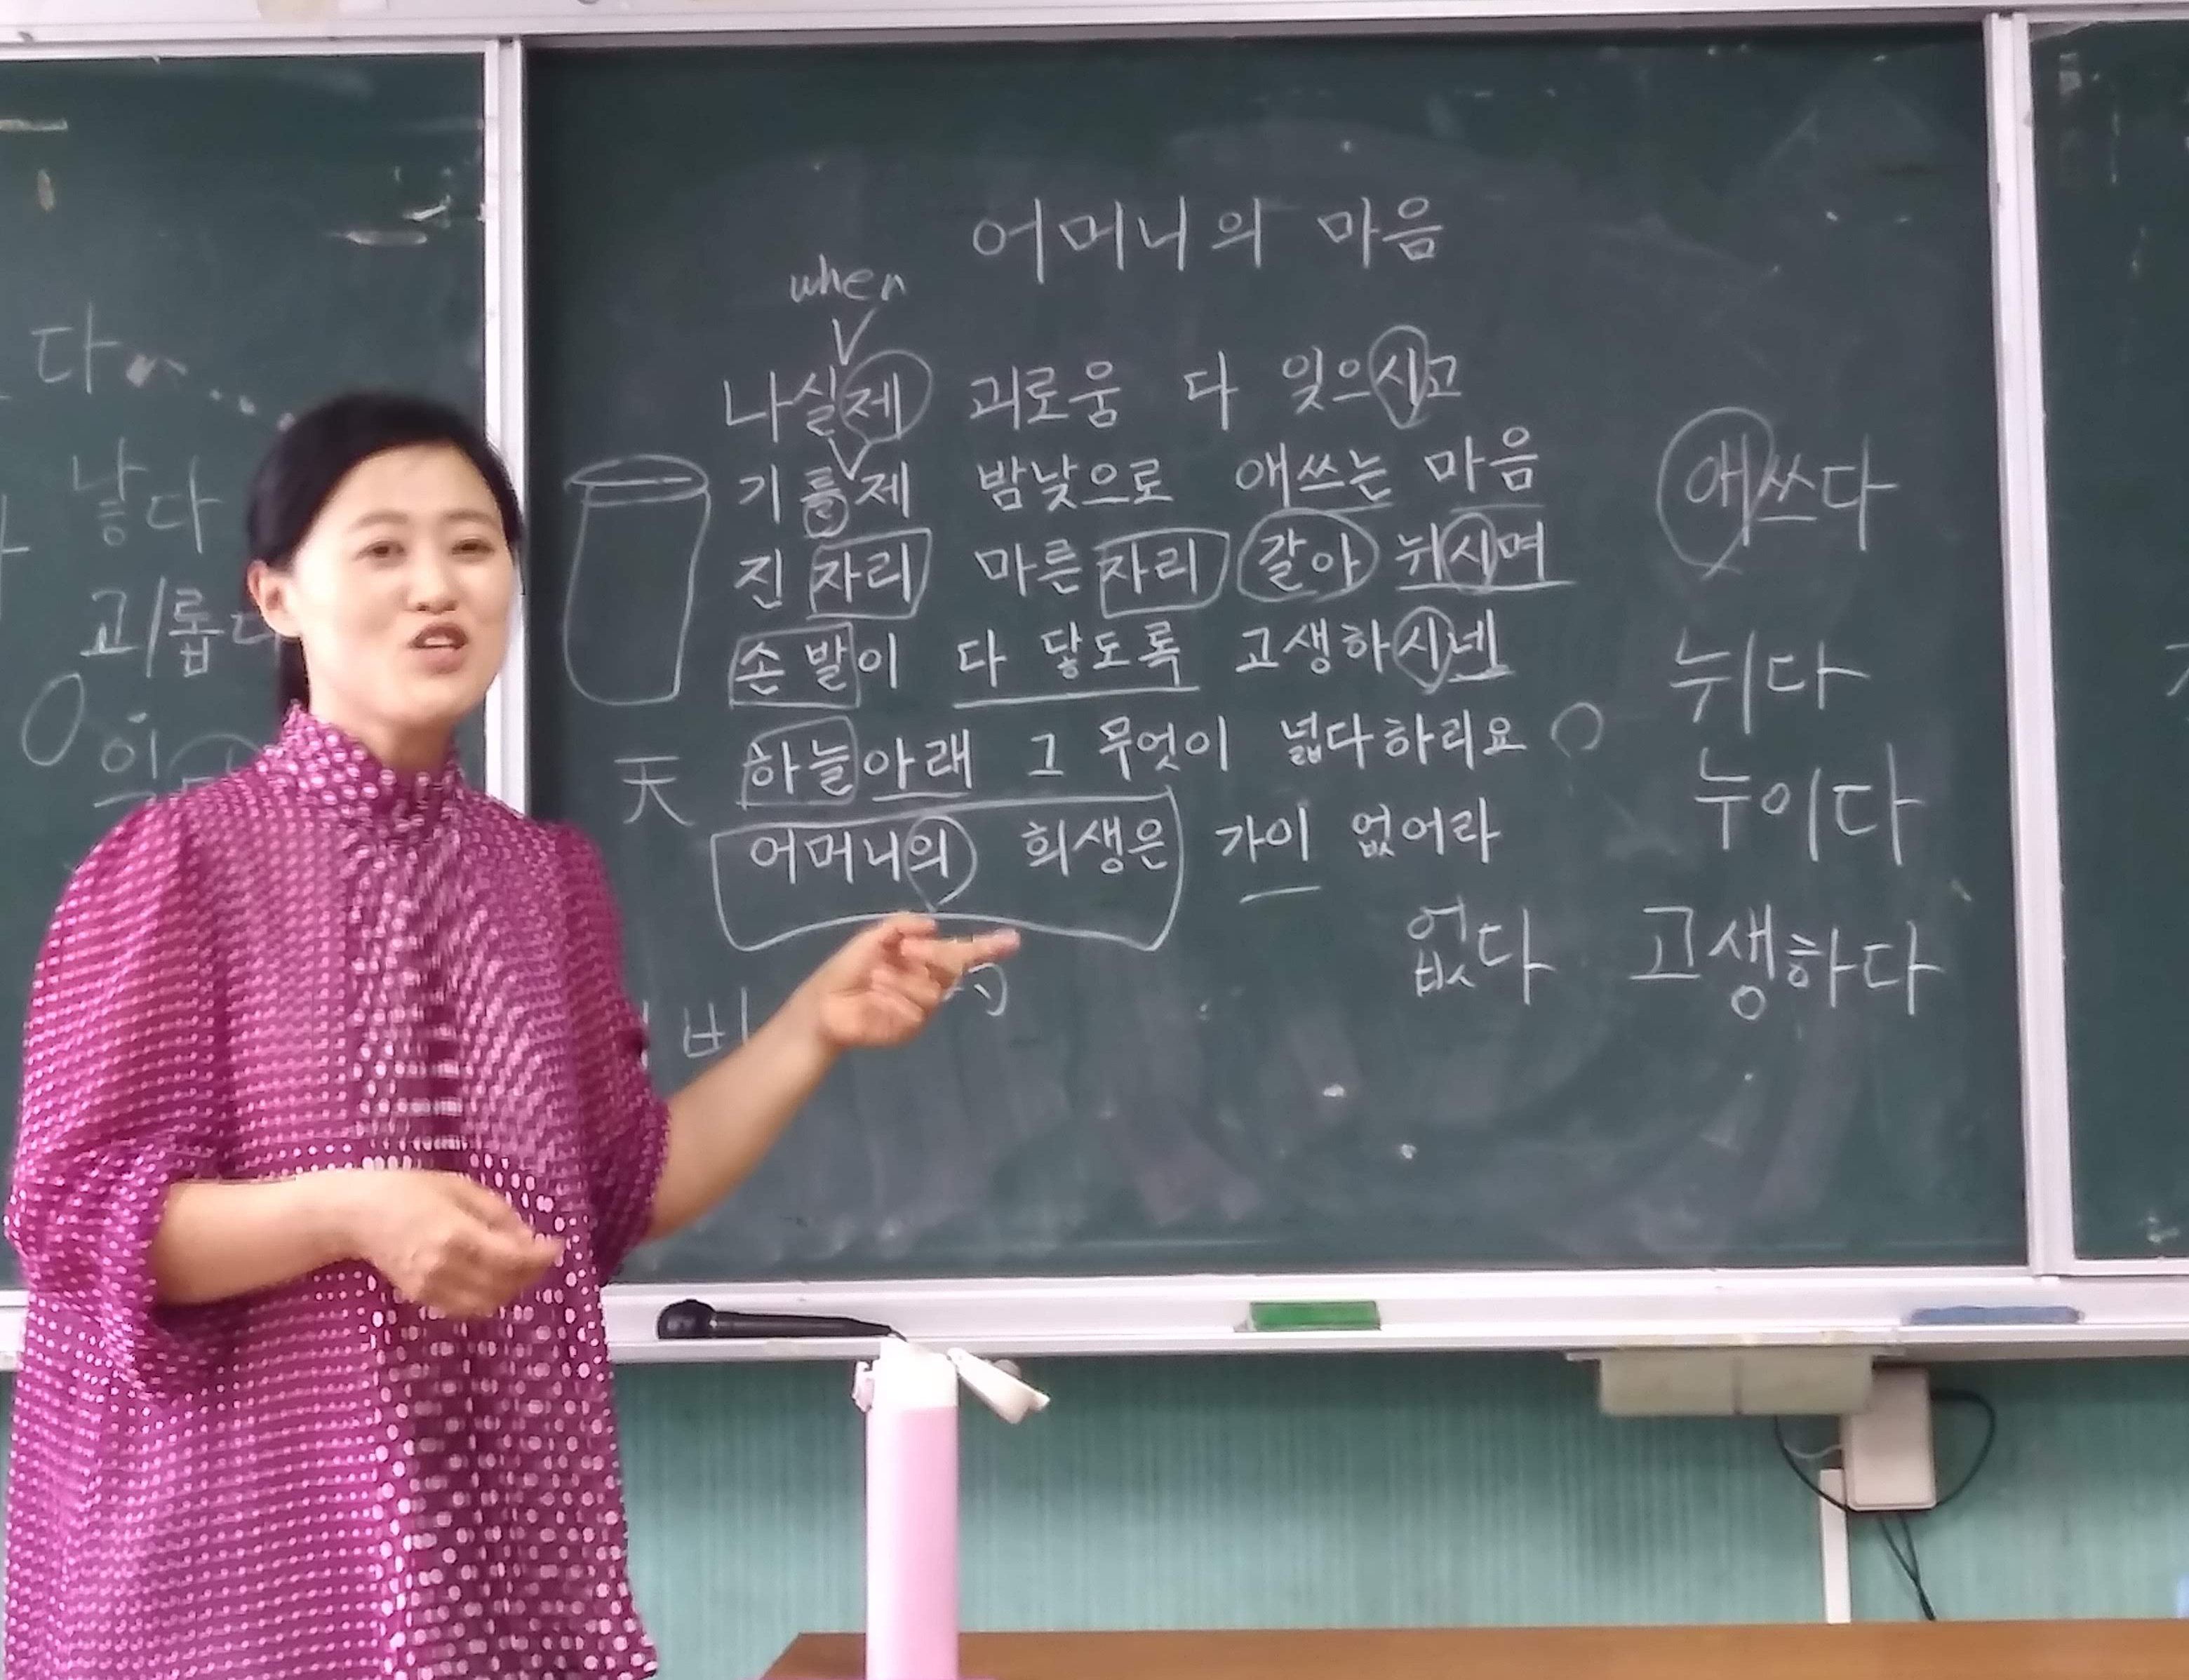 어머니의 마음
when
나실제 괴로움 다 잊으시고
기를제 밤낮으로 애쓰는 마음
진 자리 마른 자리 갈아 뉘시며
손 발이 다 닿도록 고생하시네
하늘아래 그 무엇이 넓다하리요
어머니의 희생은 가이 없어라
天
없다
애쓰다
뉘다
누이다
고생하다
다
낳다
괴롭다